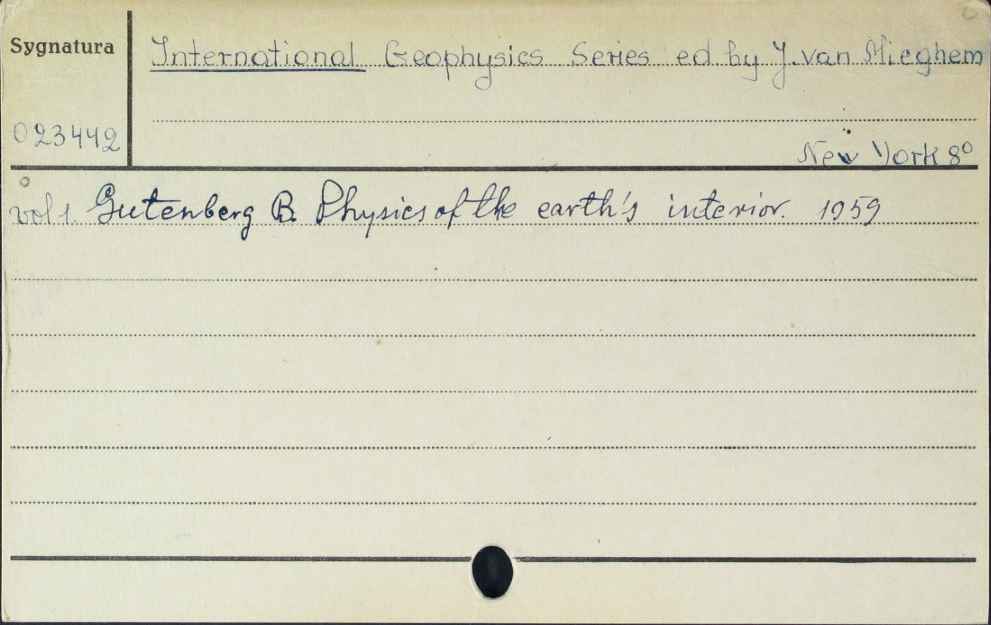 Sygnatura
International Geophysics Series ed by J. van Mieghem
023442
New York 8°
vol 1. Gutenberg B. Physics of the earth's interior. 1959